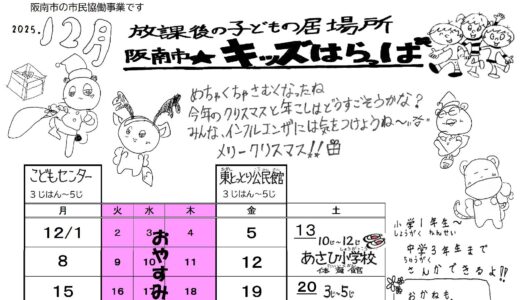 阪南市の市民協働事業です
2025.12月
放課後の子どもの居場所
阪南市★キッズはらっぱ
めちゃくちゃさむくなったね
今年のクリスマスと年こしはどうすごそうかな?
みんな、インフルエンザには気をつけようね〜
メリークリスマス!!
こどもセンター
3じはん〜5じ
東とっとり公民館
3じはん〜5じ
月 火 水 木 金 土
12/1 2 3 4 5 13
10じ〜12じ
8 9 10 11 12 あさひ小学校
体育館
15 16 17 18 19 20 3じ〜5じ
おやすみ
小学1年生〜
しょうがく ねんせい
中学3年生まで
ちゅうがく
さんかできるよ!!
おかねも、